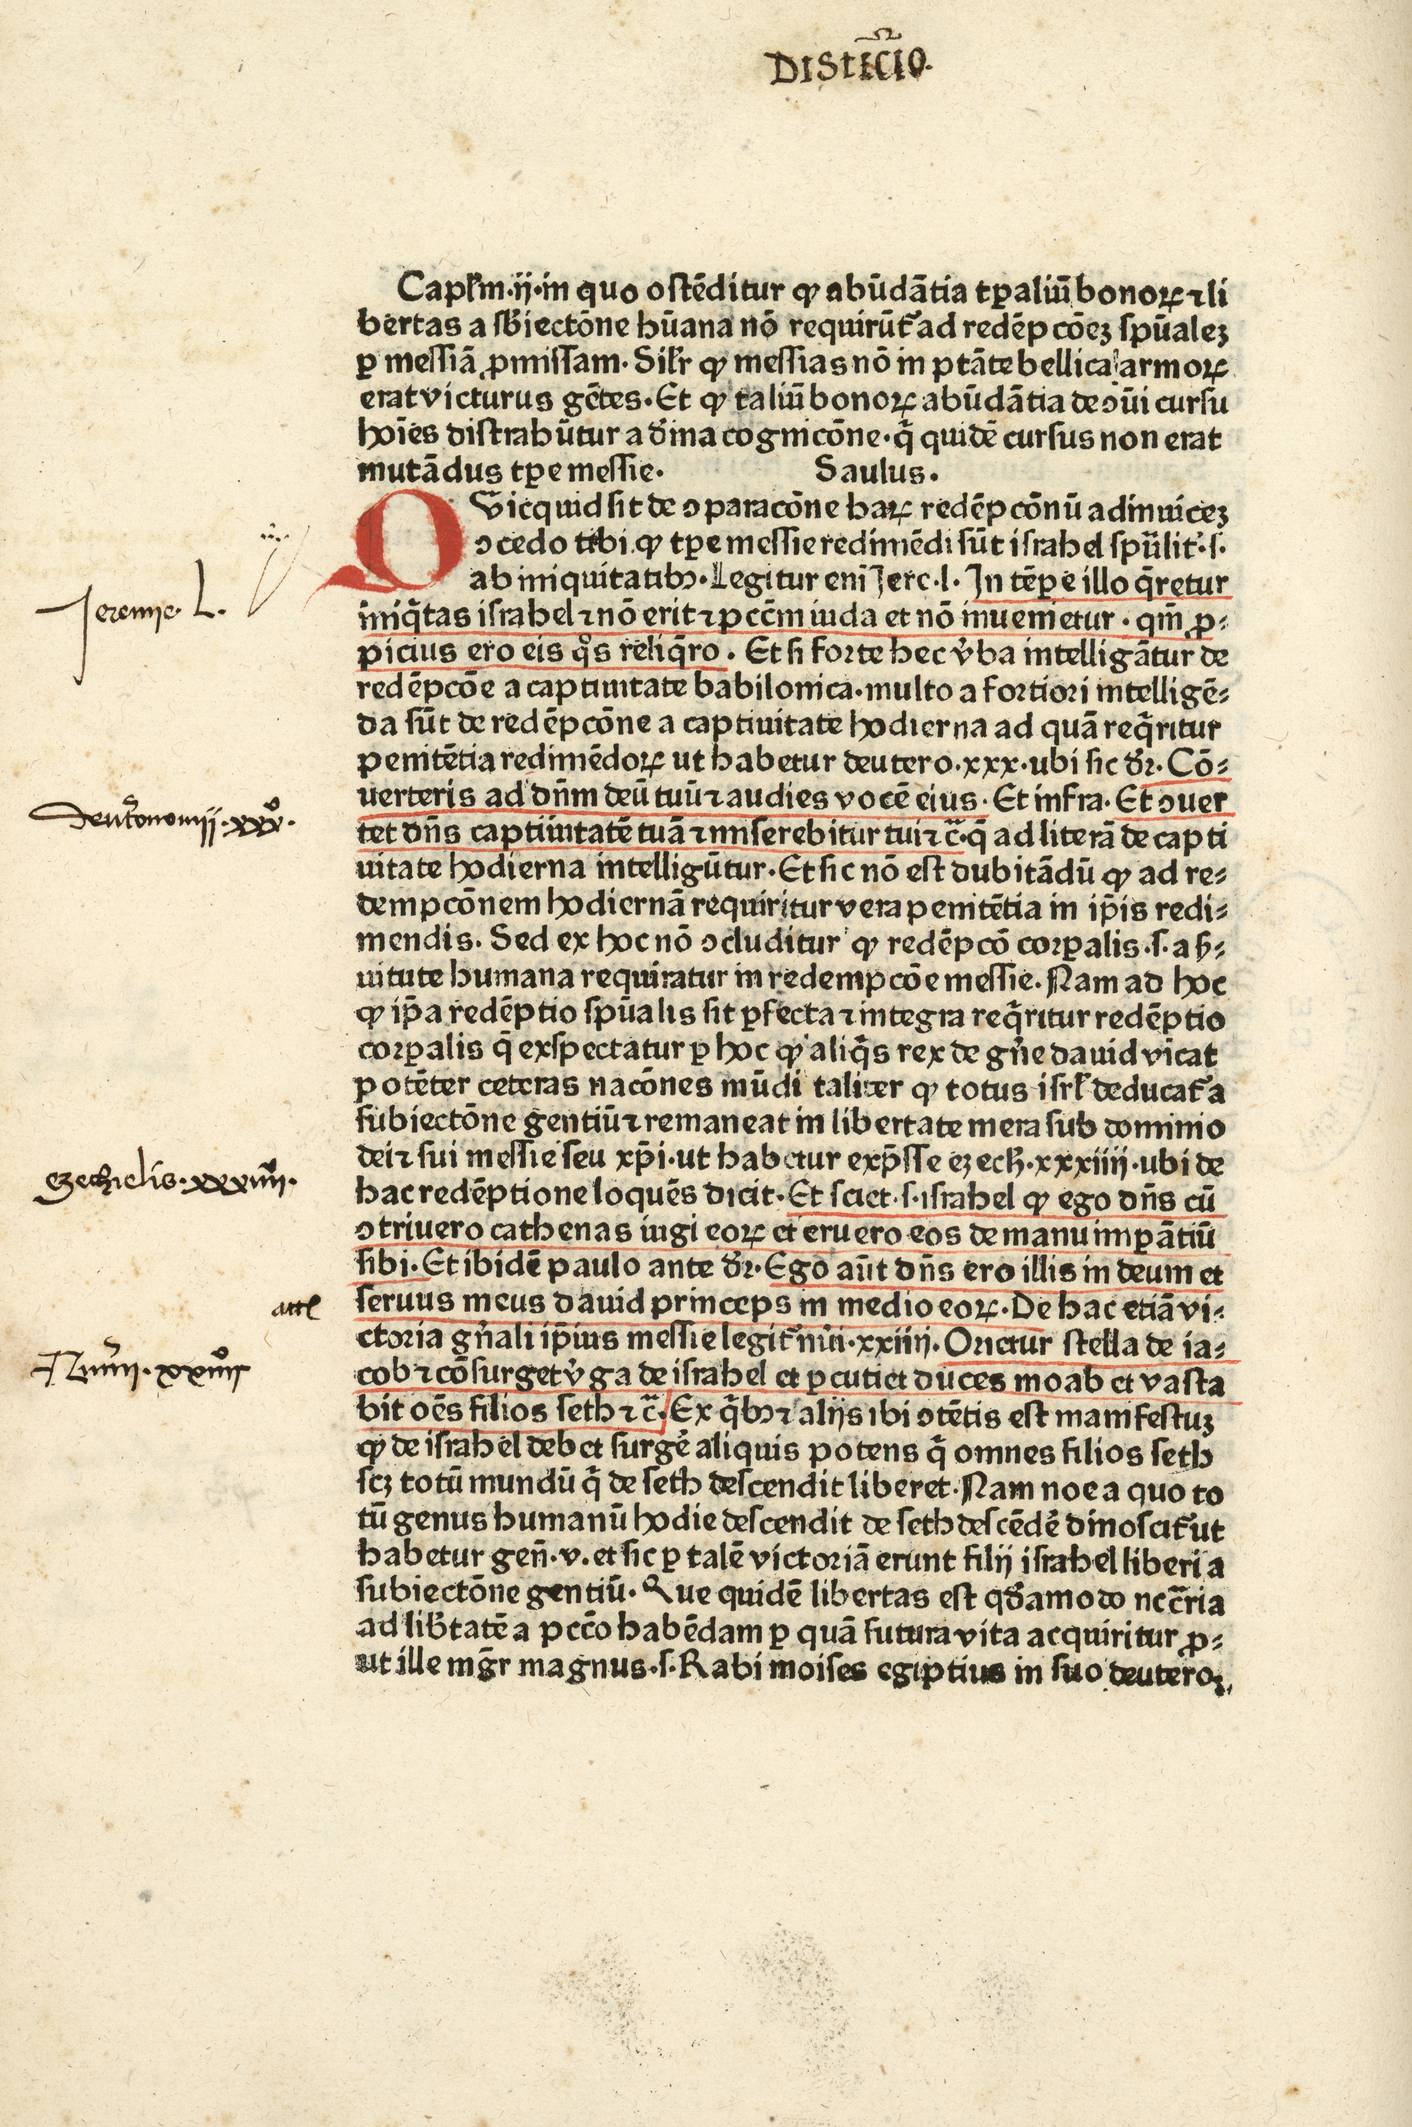 DISTĪCIO.
Capĺm·ij·in quo ostēditur ꝙ abūdātia tꝑaliū bonoꝝ ⁊ li
bertas a sb̄iectōne hūana nō requirūtᷣ ad redēpcōeꝫ spūaleꝫ
ꝑ messiā ꝓmissam. Silr̄ ꝙ messias nō in ptāte bellica armoꝝ
erat victurus gētes. Et ꝙ taliū bonoꝝ abūdātia de ↄūi cursu
hoīes distrahūtur a dīna cognicōne· q̄ quidē cursus non erat
mutādus tꝑe messie. Saulus.
QVicquid sit de ↄparacōne haꝝ redēpcōnū adinuiceꝫ
ↄcedo tibi ꝙ tꝑe messie redimēdi sūt israhel spūlitᷣ·s·
ab iniquitatibꝰ. Legitur enī Jere·l· In tēꝑe illo q̄retur
iniq̄tas israhel ⁊ nō erit ⁊ pccm̄ iuda et nō inuenietur · qm̄ ꝓ-
picius ero eis qͦs reliq̄ro. Et si forte hec v̄ba intelligātur de
redēpcōe a captiuitate babilonica·multo a fortiori intelligē-
da sūt de redēpcōne a captiuitate hodierna ad quā req̄ritur
penitētia redimēdoꝝ ut habetur deutero·xxx·ubi sic dr̄. Cō-
uerteris ad dn̄m deū tuū ⁊ audies vocē eius. Et infra. Et ↄuer
tet dn̄s captiuitatē tuā ⁊ miserebitur tui ⁊ c̄·q̄ ad literā de capti
uitate hodierna intelligūtur. Et sic nō est dubitādū ꝙ ad re-
dempcōnem hodiernā requiritur vera penitētia in ip̄is redi-
mendis. Sed ex hoc nō ↄcluditur ꝙ redēpcō corꝑalis·s·a ẜ-
uitute humana requiratur in redempcōe messie. Nam ad hoc
ꝙ ip̄a redēptio spūalis sit ꝑfecta ⁊ integra req̄ritur redēptio
corꝑalis q̄ exspectatur ꝑ hoc ꝙ aliq̄s rex de gn̄e dauid vīcat
potēter ceteras nacōnes mūdi taliter ꝙ totus isrl̄ deducatᷣ a
subiectōne gentiū ⁊ remaneat in libertate mera sub dominio
dei ⁊ sui messie seu xp̄i·ut habetur exp̄sse ezech·xxxiiij·ubi de
hac redēptione loquēs dicit. Et sciet·s·israhel ꝙ ego dn̄s cū
ↄtriuero cathenas iugi eoꝝ et eruero eos de manu imꝑātiū
sibi. Et ibidē paulo ante dr̄. Ego aūt dn̄s ero illis in deum et
seruus meus dauid princeps in medio eoꝝ. De hac etiā vi-
ctoria gn̄ali ip̄ius messie legitᷣ nūi·xxiiij. Orietur stella de ia-
cob ⁊ cōsurget v̄ga de israhel et ꝑcutiet duces moab et vasta
bit oēs filios seth ⁊ c̄. Ex q̄bꝰ ⁊ alijs ibi ↄtētis est manifestuꝫ
ꝙ de israhel debet surgē aliquis potens q̄ omnes filios seth
scꝫ totū mundū q̄ de seth descendit liberet. Nam noe a quo to
tū genus humanū hodie descendit de seth descēdē dinoscitᷣ ut
habetur gen̄·v. et sic ꝑ talē victoriā erunt filij israhel liberi a
subiectōne gentiū. Que quidē libertas est qd̄amodo ncc̄ria
ad lib̄tatē a pcc̄o habēdam ꝑ quā futura vita acquiritur ꝓ-
ut ille mgr̄ magnus·s·Rabi moises egiptius in suo deuteroꝫ
Jeremie· L.
Deut̓onomij·xxxͦ·
Ezechielis·xxxiiijͦ·
Nūmi·xxiiijͦ